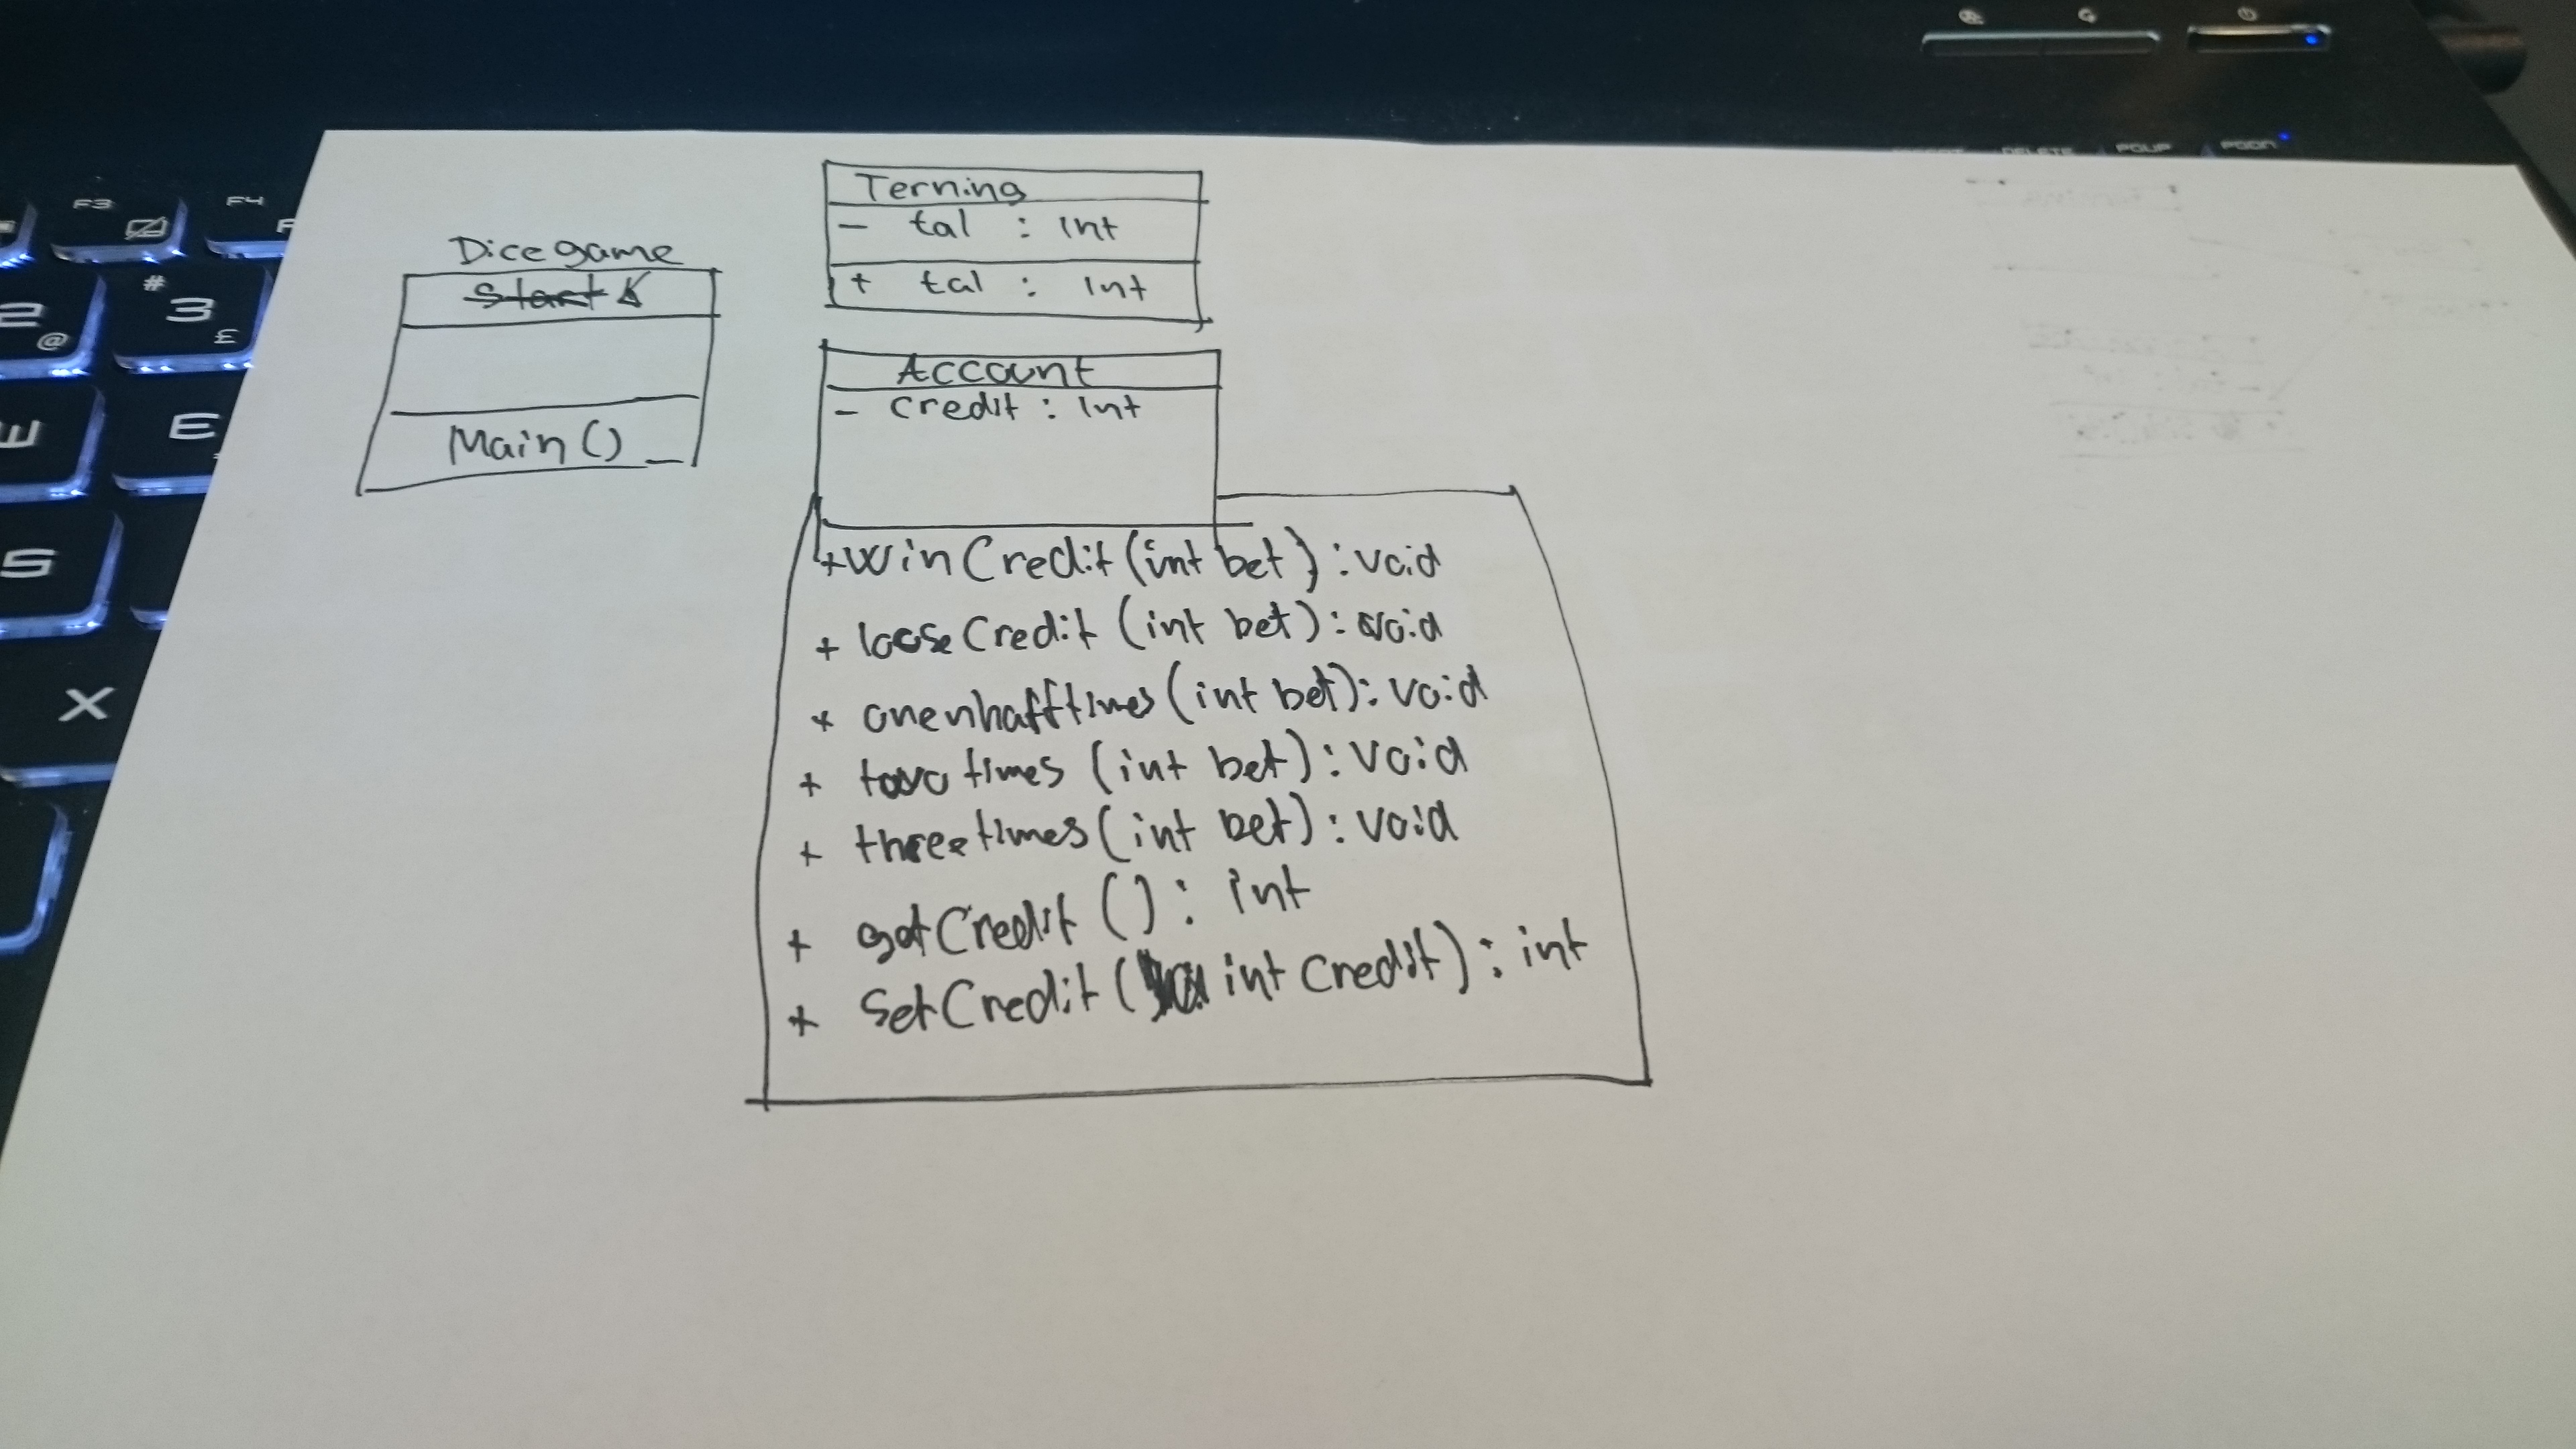 F3
F4
#
2
3
@
£
W
E
S
X
DELETE
PGUP
PGDN
Dicegame
Start
Main()
Terning
- tal : int
+ tal : int
Account
- credit : int
+winCredit(int bet):void
+ looseCredit (int bet): void
+ onenhafftimes(int bet): void
+ two times (int bet): void
+ threetimes(int bet): void
+ getCredit (): int
+ SetCredit( int credit): int